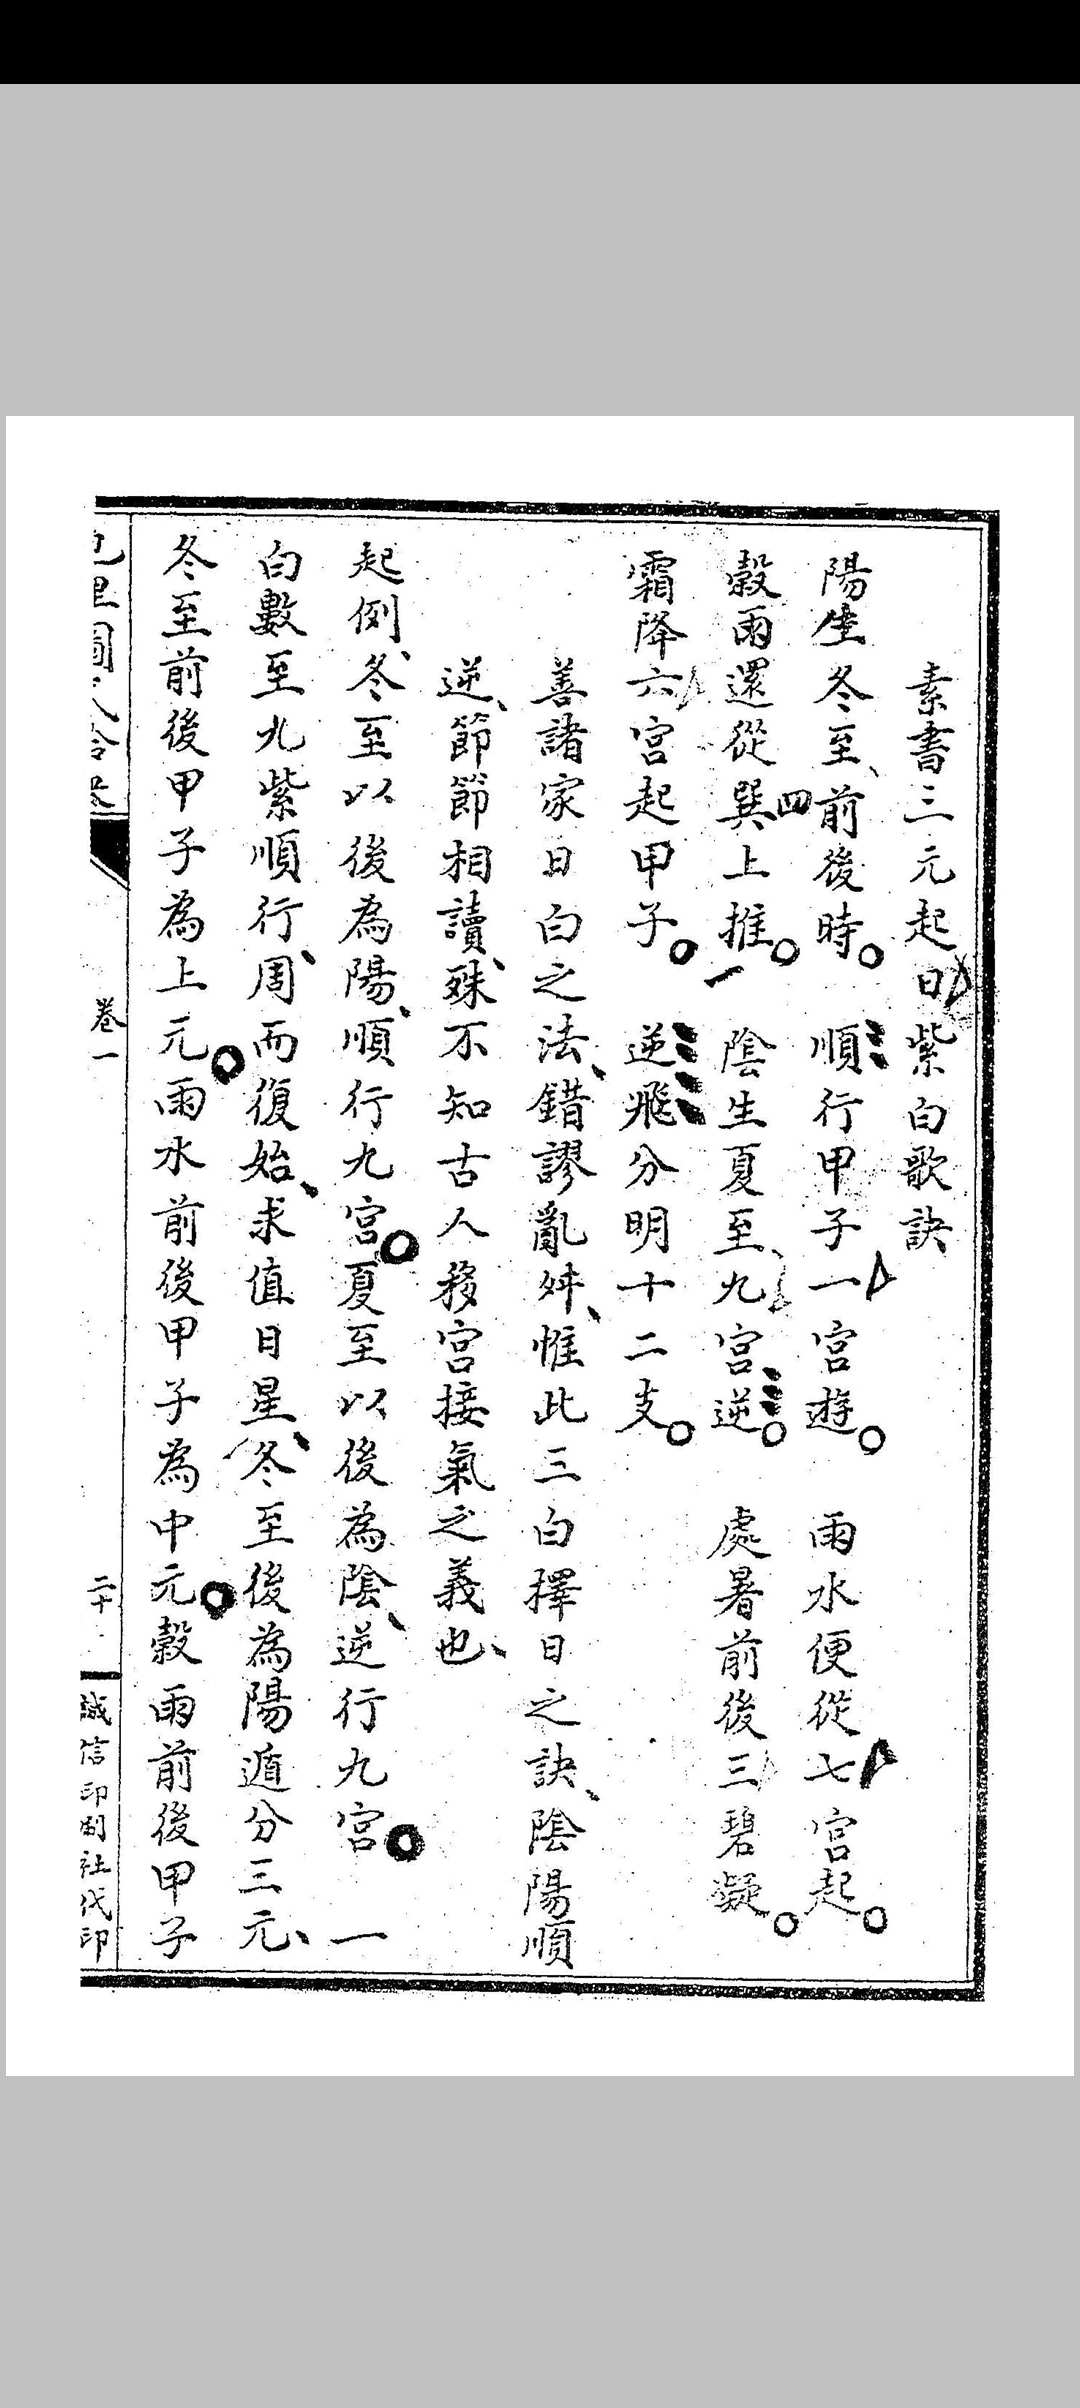 素書三元起日紫白歌訣
陽生冬至前後時 順行甲子一宮遊 雨水便從七宮起
穀雨還從巽四上推 陰生夏至九宮逆 處暑前後三碧凝
霜降六宮起甲子 逆飛分明十二支
善諸家日白之法錯謬亂舛惟此三白擇日之訣陰陽順
逆節節相讀殊不知古人移宮接氣之義也
起例冬至以後為陽順行九宮夏至以後為陰逆行九宮 一
白數至九紫順行周而復始求值日星冬至後為陽遁分三元
冬至前後甲子為上元雨水前後甲子為中元穀雨前後甲子
卷一
二十
誠信印刷社代印